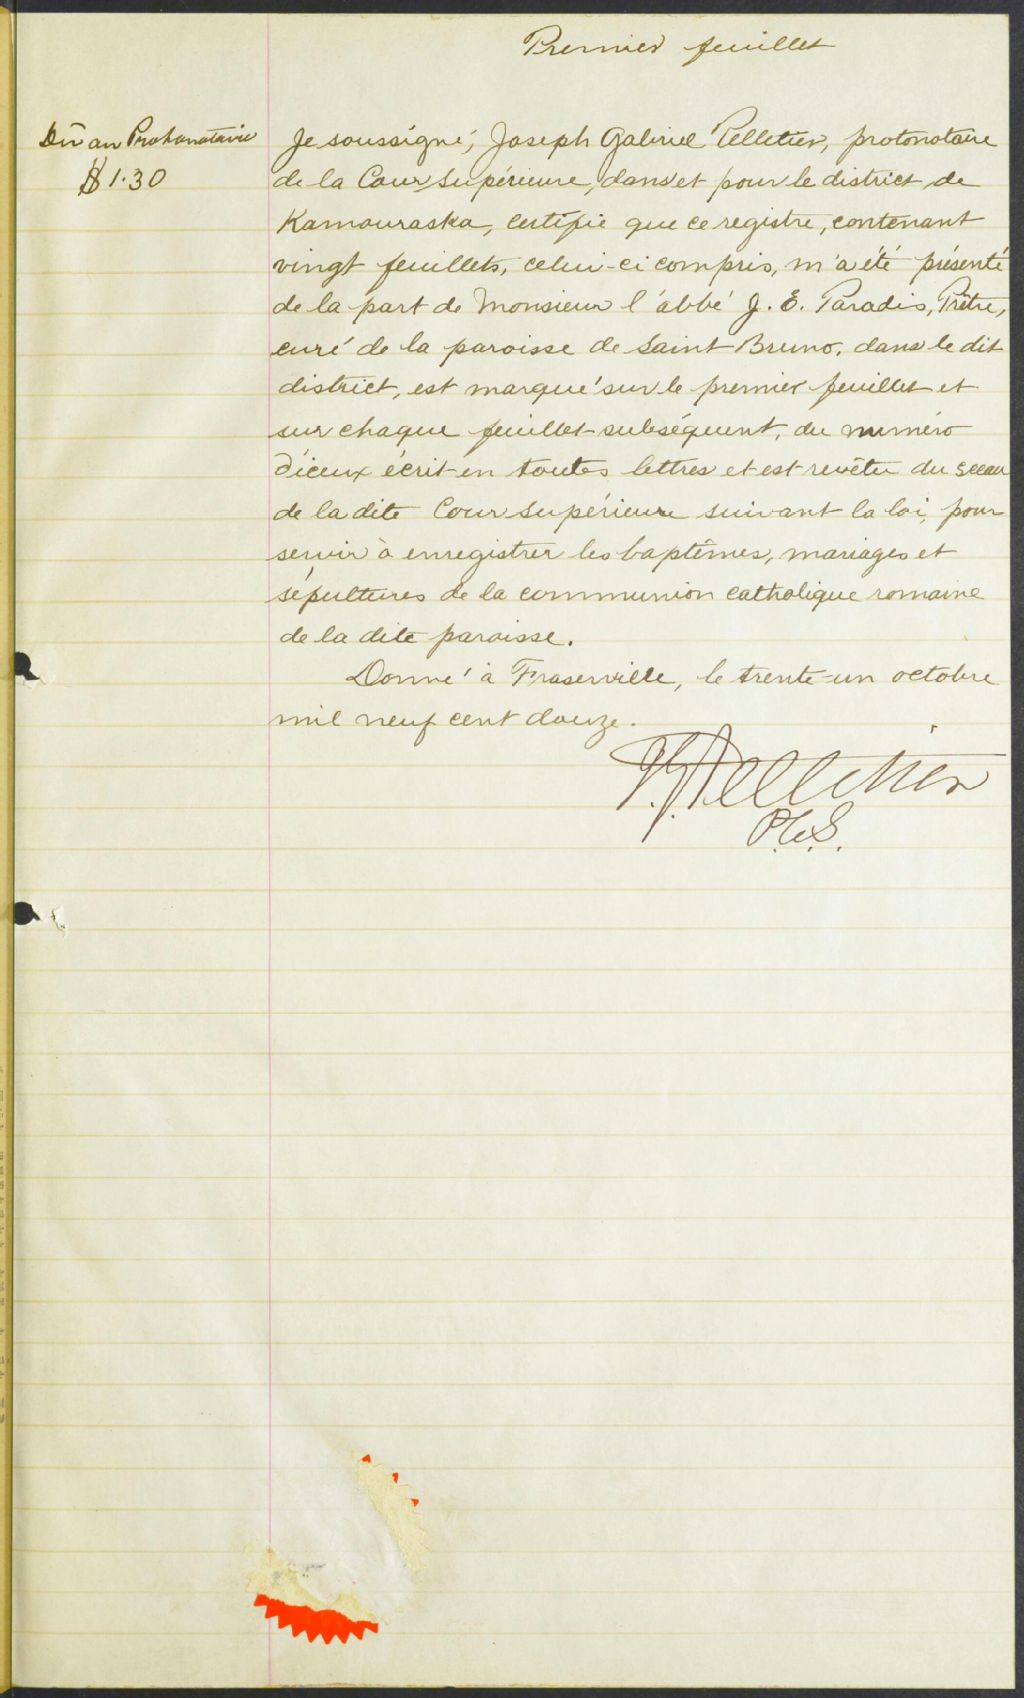 Premier feuillet
Dû au Prothonotaire
$1.30
Je soussigné, Joseph Gabriel Pelletier, protonotaire
de la Cour Supérieure, dans et pour le district de
Kamouraska, certifie que ce registre, contenant
vingt feuillets, celui-ci compris, m'a été présenté
de la part de Monsieur l'abbé J. E. Paradis, Prêtre,
curé de la paroisse de Saint Bruno, dans le dit
district, est marqué sur le premier feuillet et
sur chaque feuillet subséquent, du numéro
d'iceux écrit en toutes lettres et est revêtu du sceau
de la dite Cour Supérieure suivant la loi, pour
servir à enregistrer les baptêmes, mariages et
sépultures de la communion catholique romaine
de la dite paroisse.
Donné à Fraserville, le trente-un octobre
mil neuf cent douze.
J.G. Pelletier
P.C.S.